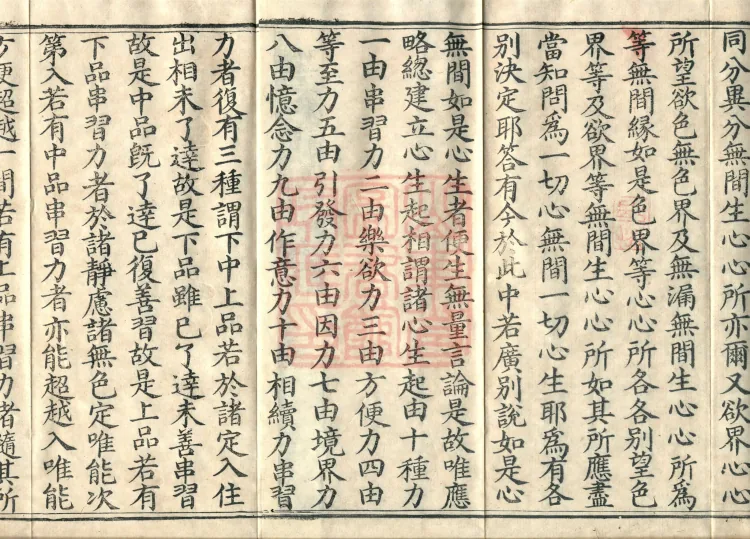 同分異分無間生心心所亦爾又欲界心
所望欲色無色界及無漏無間生心心所爲
等無間緣如是色界等心心所各各別望色
界等及欲界等無間生心心所如其所應盡
當知問爲一切心無間一切心生耶爲有各
別決定耶答有今於此中若廣別說如是心
無間如是心生者便生無量言論是故唯應
略總建立心生起相謂諸心生起由十種力
一由串習力二由樂欲力三由方便力四由
等至力五由引發力六由因力七由境界力
八由憶念力九由作意力十由相續力串習
力者復有三種謂下中上品若於諸定入住
出相未了達故是下品雖已了達未善串習
故是中品旣了達已復善習故是上品若有
下品串習力者於諸靜慮諸無色定唯能次
第入若有中品串習力者亦能超越入唯能
方便超越一間若有上品串習力者隨其所